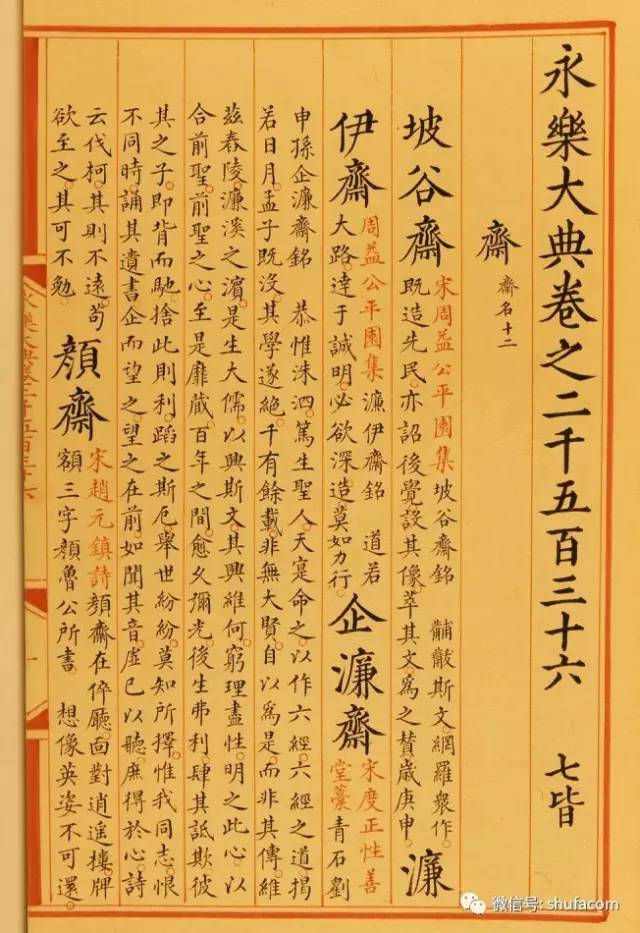 永樂大典卷之二千五百三十六　七皆
齋　齋名十二
坡谷齋　宋周益公平園集坡谷齋銘　黼黻斯文網羅衆作
既造先民亦詔後覺設其像萃其文爲之贊歲庚申　濂
伊齋　周益公平園集濂伊齋銘　道若
大路達于誠明必欲深造莫如力行　企濂齋　宋度正性善
堂藁青石劉
申孫企濂齋銘　恭惟洙泗篤生聖人天寔命之以作六經六經之道揭
若日月孟子既沒其學遂絶千有餘載非無大賢自以爲是而非其傳維
兹舂陵濂溪之濵是生大儒以興斯文其興維何窮理盡性明之此心以
合前聖前聖之心至是靡蔵百年之間愈久彌光後生弗利肆其詆欺彼
其之子即背而馳捨此則利蹈之斯厄舉世紛紛莫知所擇惟我同志恨
不同時誦其遺書企而望之望之在前如聞其音虚已以聽庶得於心詩
云伐柯其則不遠苟
欲至之其可不勉　顔齋　宋趙元鎮詩顔齋在倅廳面對逍遥樓牌
額三字顔魯公所書　想像英姿不可還
永樂大典卷二千五百三十六
一
微信号: shufacom